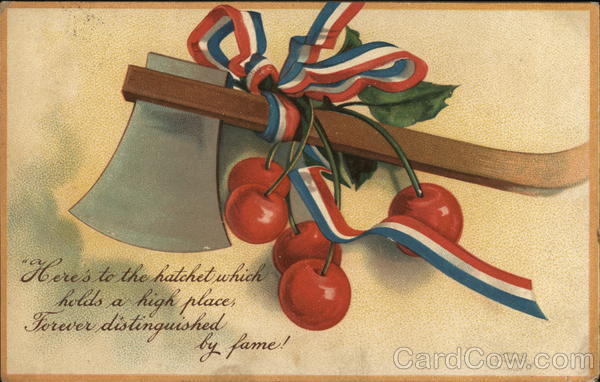 "Here's to the hatchet which
holds a high place,
Forever distinguished
by fame!
CardCow.com